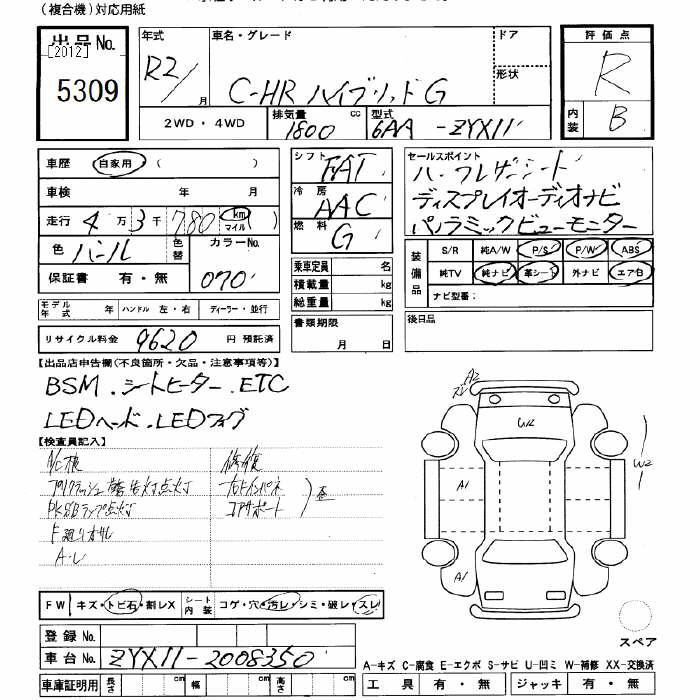 (複合機)対応用紙
出品No. [2012] 5309
年式 R2/ 月
車名・グレード C-HR ハイブリッド G
ドア
形状
2WD・4WD
排気量 1800 cc
型式 6AA-ZYX11
評価点 R
内装 B
車歴 自家用 ( )
車検 年 月
走行 4万3千780 km マイル
色 パール 色替 カラーNo. 070
保証書 有・無
モデル年式 年 ハンドル 左・右 ディーラー・並行
リサイクル料金 9620 円 預託済
シフト FAT
冷房 AAC
燃料 G
乗車定員 名
積載量 kg
総重量 kg
書類期限 月 日
セールスポイント
ハーフレザーシート
ディスプレイオーディオナビ
パノラミックビューモニター
装備品 S/R 純A/W P/S P/W ABS
純TV 純ナビ 革シート 外ナビ エアB
ナビ型番:
後日品
【出品店申告欄(不良箇所・欠品・注意事項等)】
BSM.シートヒーター.ETC
LEDヘード.LEDフォグ
【検査員記入】
A/C横
プリクラッシュ警告灯点灯
PKSBランプ点灯
F廻りオサレ
修復
右Fインパネ
コアサポート
歪
A2
W2
A1
A1
FW キズ・トビ石・割レX シート内装 コゲ・穴・汚レ・シミ・破レ・スレ
登録No.
車台No. ZYX11-2008350
車庫証明用 長さ cm 幅 cm 高さ cm
スペア
A-キズ C-腐食 E-エクボ S-サビ U-凹ミ W-補修 XX-交換済
工具 有・無 ジャッキ 有・無